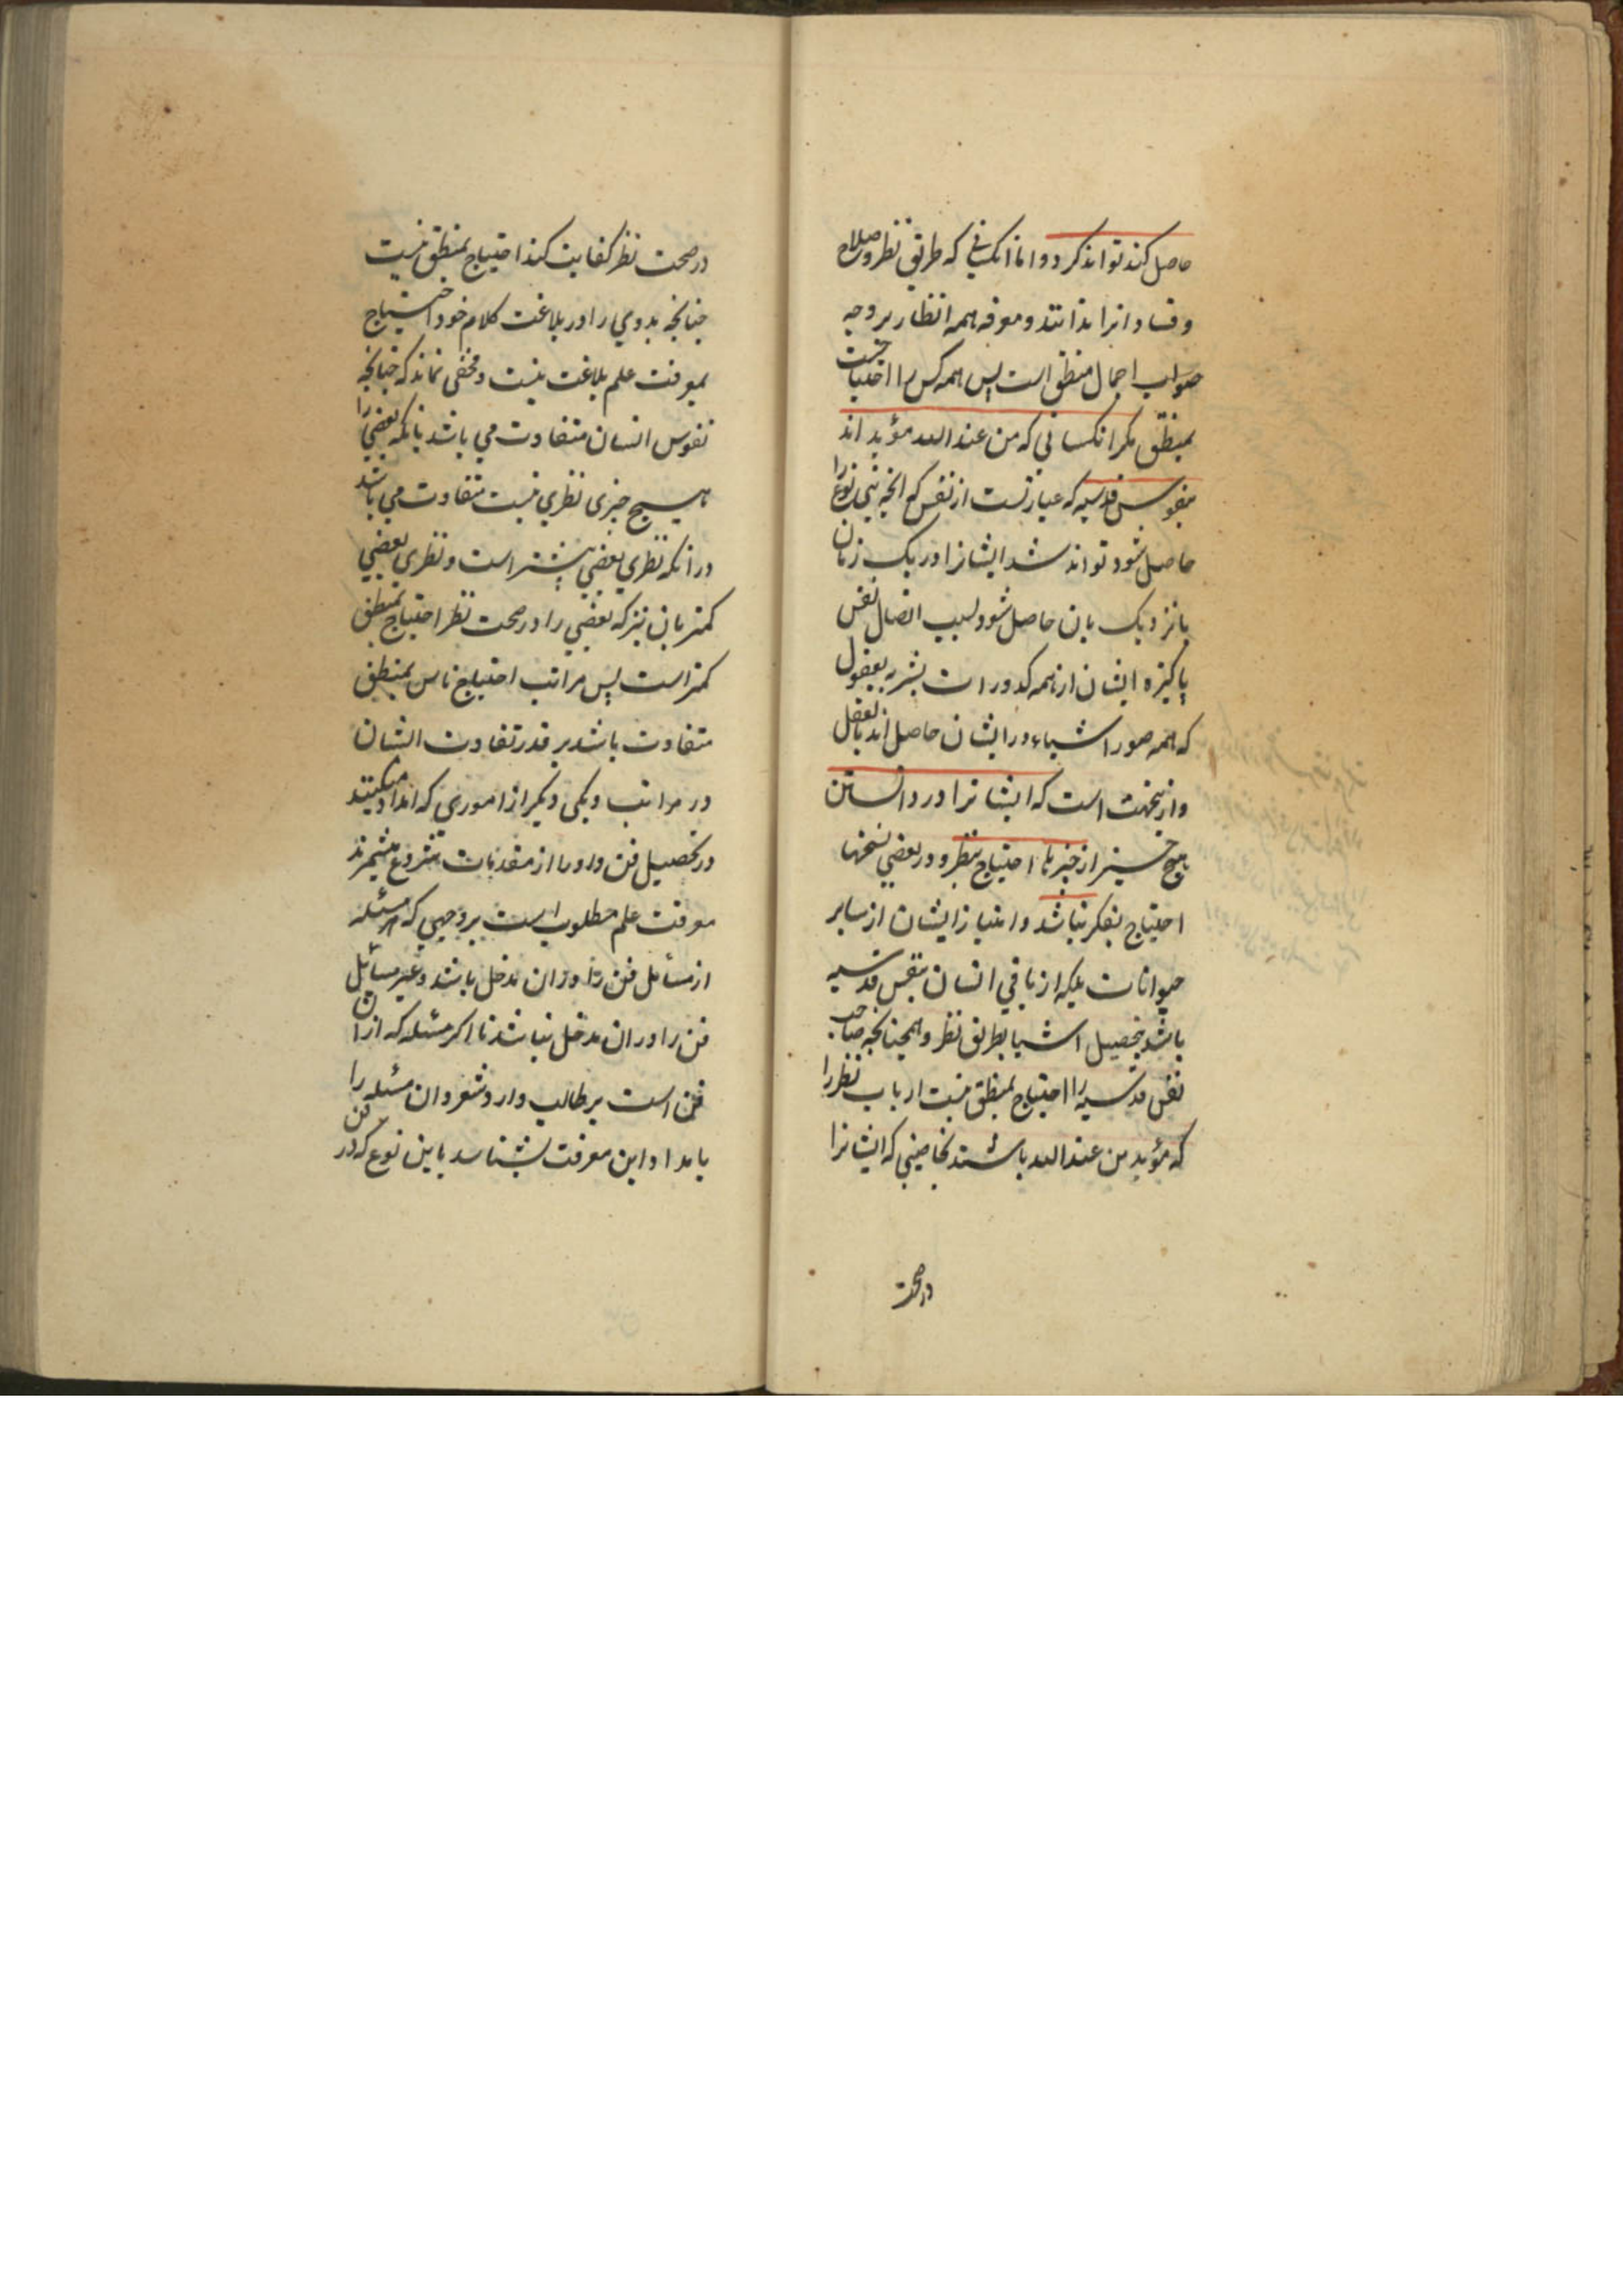 حاصل کند تواند کرد و اما انکسانی که طریق نظر و صلاح
و فساد انرا ندانند و معرفه همه انظار بر وجه
صواب اجمال منطق است پس همه کس را احتیاجست
بمنطق مکر انکسانی که من عند الله مؤید اند
بنفوس قدسیه که عبارتست از نفسی که انچه بنی نوع را
حاصل شود تواند شد ایشانرا در یک زمان
یا نزدیک بان حاصل شود بسبب اتصال نفس
پاکیزه ایشان از همه کدورات بشریه بعقول
که همه صور اشیاء در ایشان حاصل اند بالفعل
و ازینجهت است که ایشانرا در دانستن
هیچ چیز از چیزها احتیاج بنظر و در بعضی نسخها
احتیاج بفکر نباشد و امتیاز ایشان از سایر
حیوانات بلکه از باقی انسان بنفس قدسیه
باشد نه بتحصیل اشیا بطریق نظر و همچنانچه صاحب
نفس قدسیه را احتیاج بمنطق نیست ارباب نظر را
که مؤید من عند الله باشند بخاصیتی که ایشانرا
در صحت
در صحت نظر کفایت کند احتیاج بمنطق نیست
چنانچه بدوی را در بلاغت کلام خود احتیاج
بمعرفت علم بلاغت نیست و مخفی نماند که چنانچه
نفوس انسان متفاوت می باشد بانکه بعضی را
هیچ چیزی نظری نیست متفاوت می باشد
در انکه نظری بعضی بیشتر است و نظری بعضی
کمتر بان نیز که بعضی را در صحت نظر احتیاج بمنطق
کمتر است پس مراتب احتیاج ناس بمنطق
متفاوت باشد بر قدر تفاوت ایشان
در مراتب و یکی دیکر از اموری که امداد میکنند
در تحصیل فن و او را از مقدمات شروع میشمرند
معرفت علم مطلوب است بر وجهی که هر مسئله
از مسائل فن را در ان مدخل باشد و غیر مسائل
فن را در ان مدخل نباشد تا اکر مسئله که از ان
فن است بر طالب وارد شود ان مسئله را
بامداد این معرفت بشناسد باین نوع که در فن